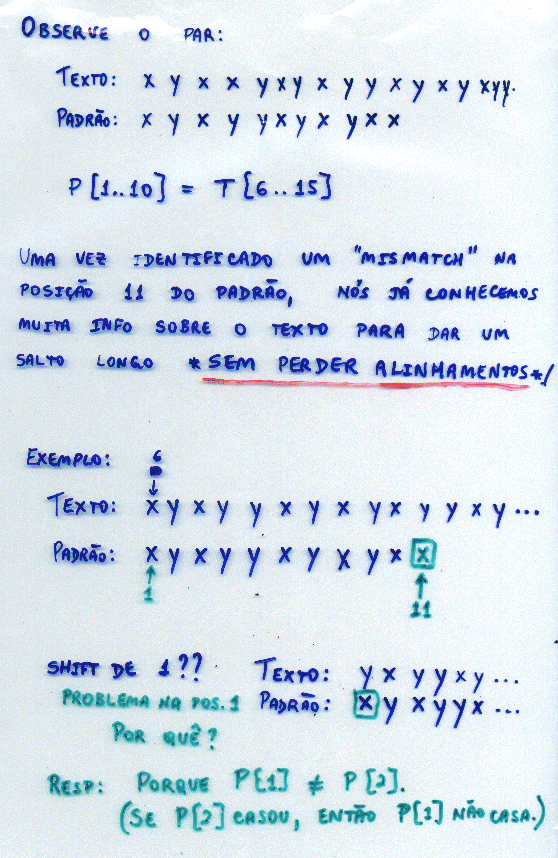 OBSERVE O PAR:
TEXTO: x y x x y x y x y y x y x y x y y.
PADRÃO: x y x y y x y x y x x
P[1..10] = T[6..15]
UMA VEZ IDENTIFICADO UM "MISMATCH" NA
POSIÇÃO 11 DO PADRÃO, NÓS JÁ CONHECEMOS
MUITA INFO SOBRE O TEXTO PARA DAR UM
SALTO LONGO *SEM PERDER ALINHAMENTOS*/
EXEMPLO: 6
TEXTO: x y x y y x y x y x y y x y ...
PADRÃO: x y x y y x y x y x x
1 11
SHIFT DE 1?? TEXTO: y x y y x y ...
PROBLEMA NA POS. 1 PADRÃO: x y x y y x ...
POR QUÊ?
RESP: PORQUE P[1] ≠ P[2].
(SE P[2] CASOU, ENTÃO P[1] NÃO CASA.)